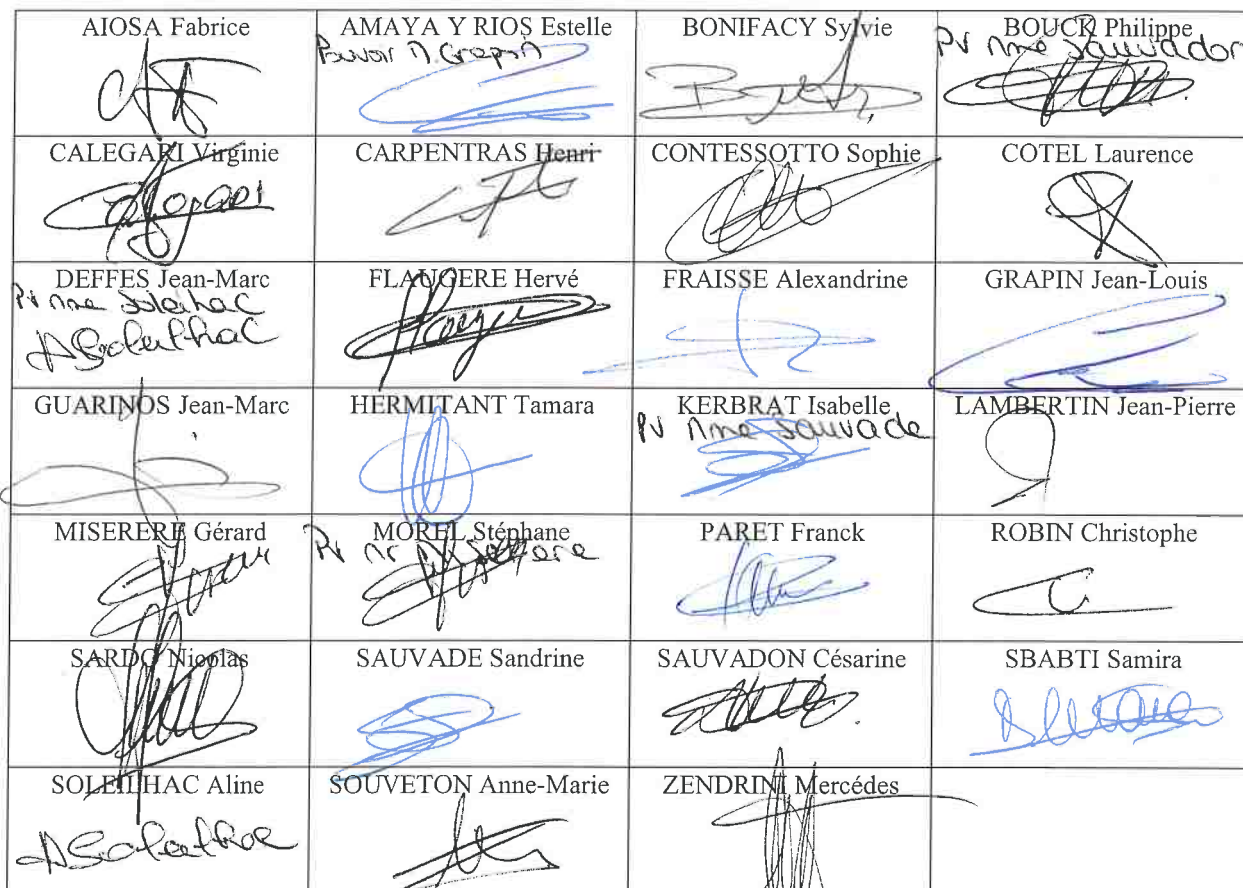 AIOSA Fabrice
AMAYA Y RIOS Estelle
Pouvoir M. Grapin
BONIFACY Sylvie
BOUCK Philippe
Pv Mme Sauvadon
CALEGARI Virginie
CARPENTRAS Henri
CONTESSOTTO Sophie
COTEL Laurence
DEFFES Jean-Marc
Pv Mme Soleilhac
ASoleilhac
FLAUGERE Hervé
FRAISSE Alexandrine
GRAPIN Jean-Louis
GUARINOS Jean-Marc
HERMITANT Tamara
KERBRAT Isabelle
Pv Mme Sauvade
LAMBERTIN Jean-Pierre
MISERERE Gérard
MOREL Stéphane
Pv Mr Miserere
PARET Franck
ROBIN Christophe
SARDO Nicolas
SAUVADE Sandrine
SAUVADON Césarine
SBABTI Samira
SOLEILHAC Aline
ASoleilhac
SOUVETON Anne-Marie
ZENDRINI Mercédes